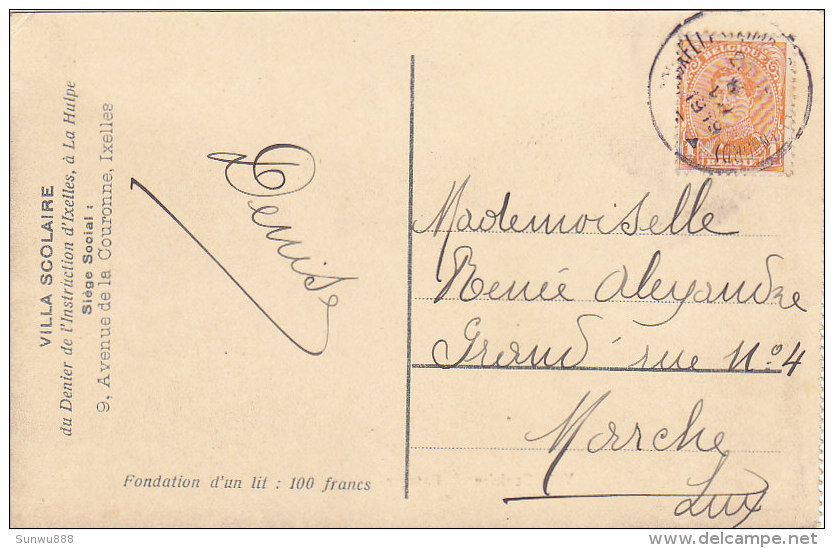 VILLA SCOLAIRE
du Denier de l'Instruction d'Ixelles, à La Hulpe
Siège Social :
9, Avenue de la Couronne, Ixelles
Denise
Fondation d'un lit : 100 francs
BELGIQUE
1
BELGIË
1919
Mademoiselle
Renée Alexandre
Grand' rue No 4
Marche
Lux
Sunwu888
delcampe.net